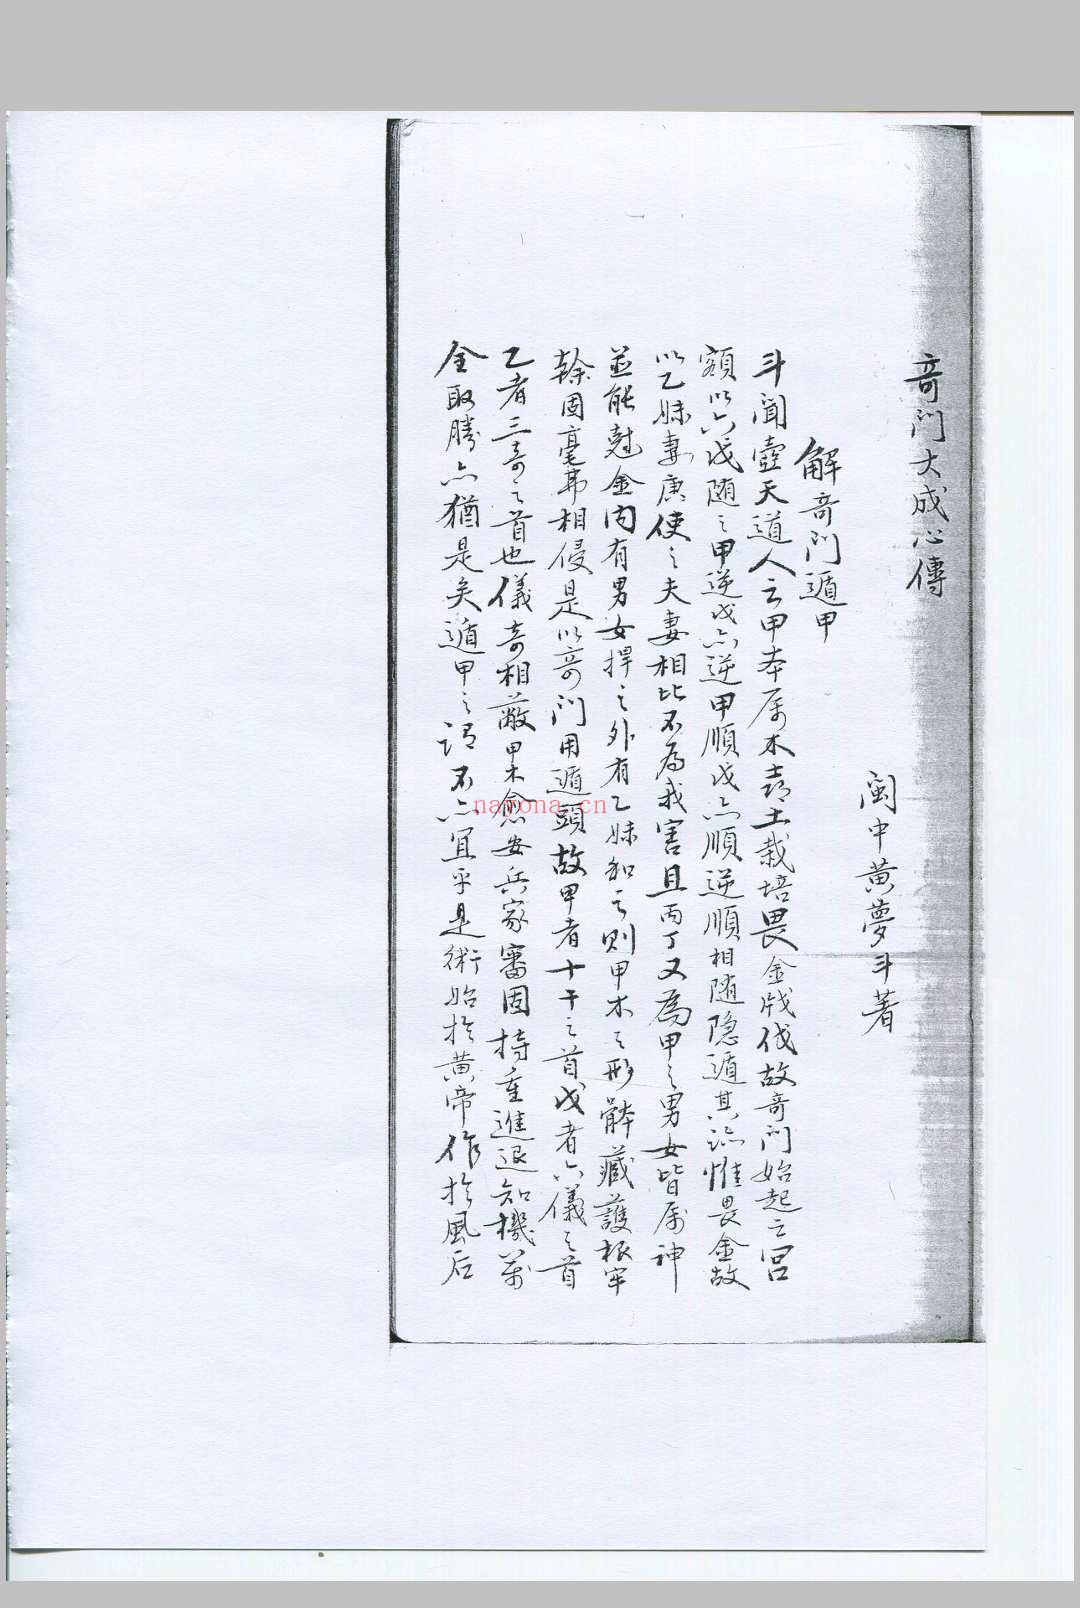 奇门大成心傳
閩中黄夢斗著
解奇门遁甲
斗聞壺天道人云甲本属木喜土栽培畏金戕伐故奇门始起之宫
額以六戊随之甲逆戊亦逆甲順戊亦順逆順相随隐遁其踪惟畏金故
以乙妹妻庚使之夫妻相比不為我害且丙丁又為甲之男女皆属神
並能尅金内有男女捍之外有乙妹和之则甲木之形骵藏護根牢
榦固毫弗相侵是以奇门用遁頭故甲者十干之首戊者六儀之首
乙者三奇之首也儀奇相蔽甲木愈安兵家審固持重進退知機萬
全取勝亦猶是矣遁甲之谓不亦宜乎是術始於黄帝作於風后
nayona.cn